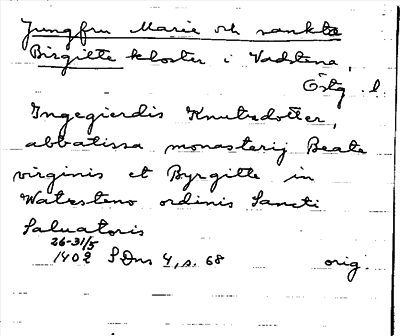 Jungfru Marie och sankta
Birgitte kloster i Vadstena,
Östg. l.
Ingegierdis Knutsdotter,
abbatissa monasterij Beate
virginis et Byrgitte in
Watzsteno ordinis Sancti
Saluatoris
26-31/5
1402 SDns 4, s. 68 orig.